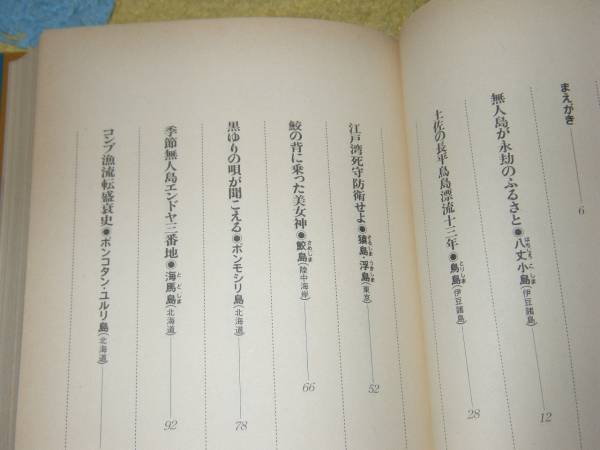 まえがき 6
無人島が永劫のふるさと●八丈小島(伊豆諸島) 12
はちじょうこじま
土佐の長平鳥島漂流十三年●鳥島(伊豆諸島) 28
とりしま
江戸湾死守防衛せよ●猿島・浮島(東京) 52
さるしま うきしま
鮫の背に乗った美女神●鮫島(陸中海岸) 66
さめしま
黒ゆりの唄が聞こえる●ポンモシリ島(北海道) 78
季節無人島エンドヤ三番地●海馬島(北海道) 92
とどしま
コンブ漁流転盛衰史●ポンコタン・ユルリ島(北海道)